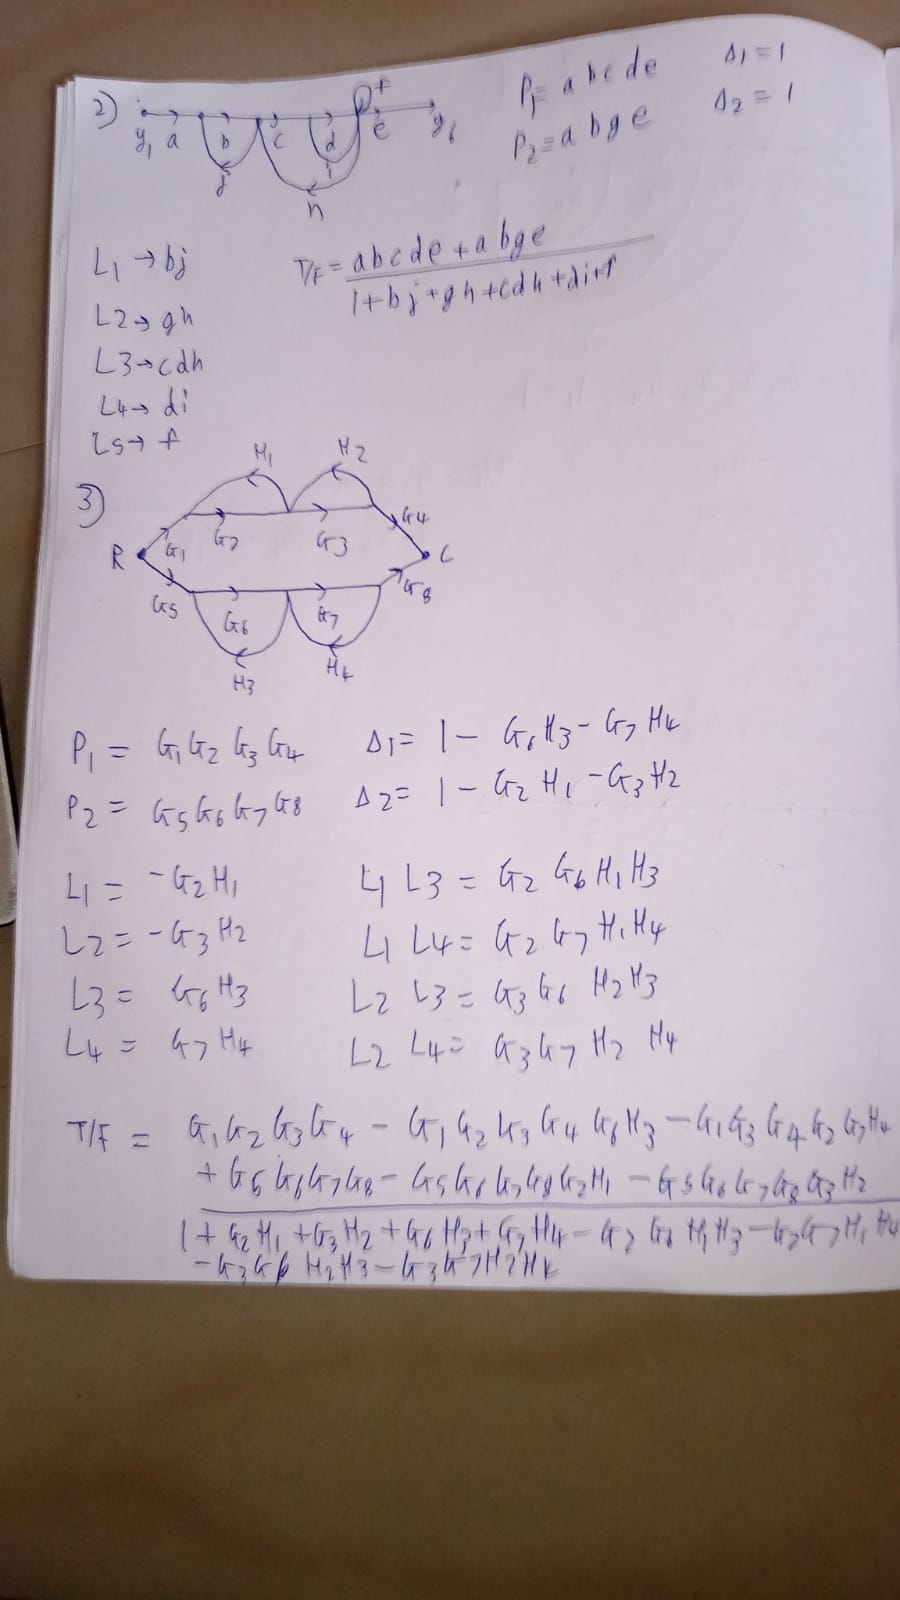 2)
y1 a b c d e f y6
j i h
P1= abcde Δ1=1
P2=abge Δ2=1
L1→bj
L2→gh
L3→cdh
L4→di
L5→f
T/F = abcde+abge
1+bj+gh+cdh+di+f
3)
H1 H2
G1 G2 G3 G4
R C
G5 G6 G7 G8
H3 H4
P1 = G1G2G3G4 Δ1= 1- G6H3-G7H4
P2= G5G6G7G8 Δ2= 1-G2H1-G3H2
L1= -G2H1 L1 L3 = G2 G6 H1 H3
L2=-G3H2 L1 L4= G2 G7 H1 H4
L3= G6H3 L2 L3 = G3G6 H2H3
L4 = G7 H4 L2 L4= G3G7 H2 H4
T/F = G1G2G3G4 - G1G2G3G4G6H3 -G1G3G4G2G7H4
+G5G6G7G8- G5G6G7G8G2H1 -G5G6G7G8G3H2
1+G2H1+G3H2+G6H3+G7H4-G2G6H1H3-G2G7H1H4
-G3G6 H2H3-G3G7H2H4